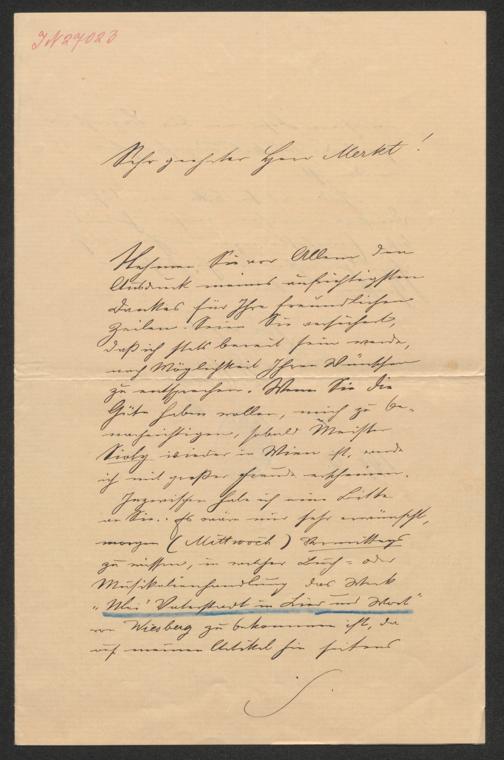 IN 27023
Sehr geehrter Herr Merkt!
Nehmen Sie vor Allem den
Ausdruck meines aufrichtigsten
Dankes für Ihre freundlichen
Zeilen. Seien Sie versichert,
daß ich stets bereit sein werde,
nach Möglichkeit Ihren Wünschen
zu entsprechen. Wenn Sie die
Güte haben wollen, mich zu be-
nachrichtigen, sobald Meister
Sioly wieder in Wien ist, werde
ich mit großer Freude erscheinen.
Inzwischen habe ich eine Bitte
an Sie: Es wäre mir sehr erwünscht,
morgen (Mittwoch) Vormittags
zu wissen, in welcher Buch- oder
Musikalienhandlung das Werk
"Mei' Vaterstadt in Lied und Wort"
von Wiesberg zu bekommen ist, da
auf meinen Artikel hin seitens